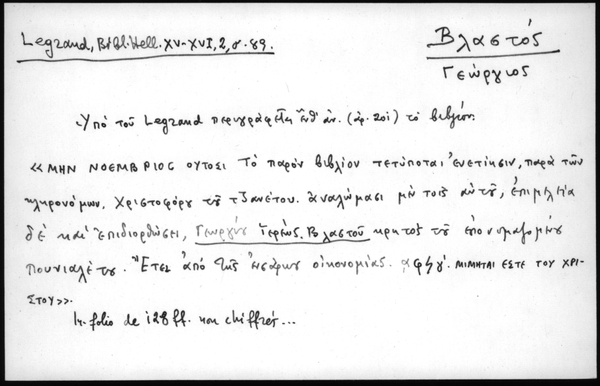 Legrand, Bibl. Hell. XV-XVI, 2, σ. 89.
Βλαστός
Γεώργιος
Ὑπό τοῦ Legrand περιγράφεται ἔνθ' ἀν. (ἀρ. 201) τό βιβλίον:
«ΜΗΝ ΝΟΕΜΒΡΙΟC ΟΥΤΟΣΙ Τό παρόν βιβλίον τετύποται Ἐνετίησιν, παρά τῶν
κληρονόμων, Χριστοφόρου τοῦ τζανέτου. ἀναλώμασι μὲν τοῖς αὐτοῦ, ἐπιμελεία
δέ καί ἐπιδιορθώσει, Γεωργίου Ἱερέως Βλαστοῦ κρητός τοῦ ἐπονομαζομένου
πουνιαλέτου. Ἔτει ἀπό τῆς ἐνσάρκου οἰκονομίας. αφϟγ'. ΜΙΜΗΤΑΙ ΕΣΤΕ ΤΟΥ ΧΡΙ-
ΣΤΟΥ».
In-folio de 128 ff. non chiffrés...